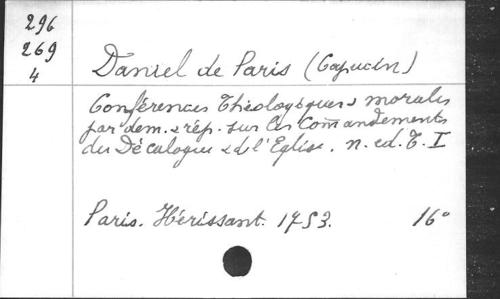 296
269
4
Daniel de Paris (Capucin)
Conférences Théologiques & morales
par dem. & rép. sur les Comandements
du Décalogue & de l'Eglise. n. ed. T. I
Paris. Hérissant. 1753. 16°